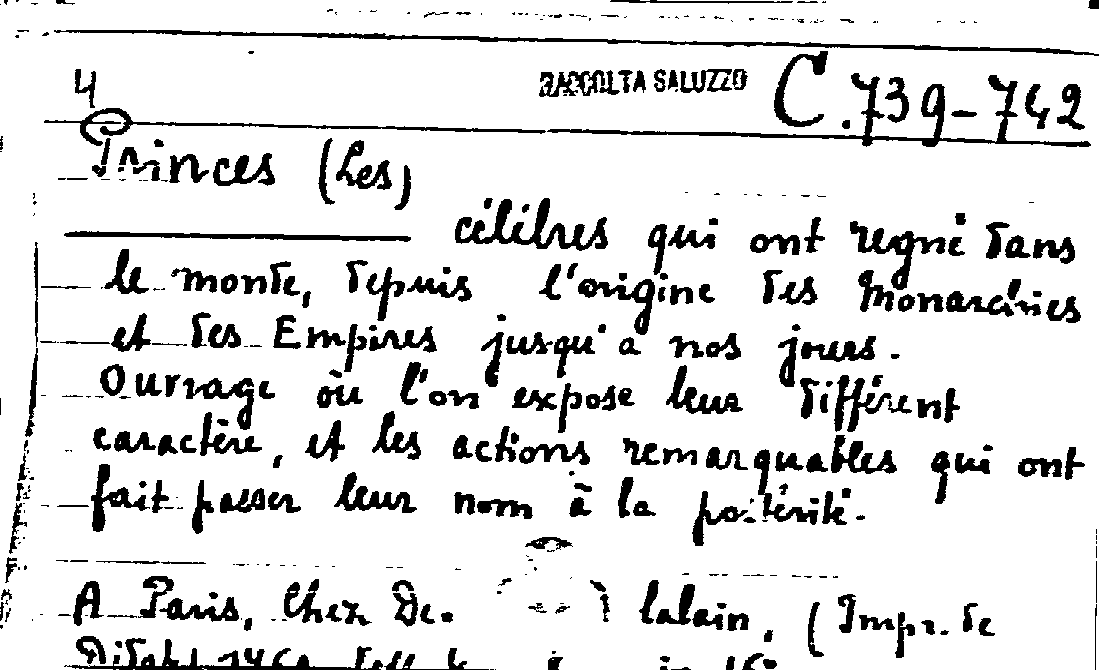 4
RACCOLTA SALUZZO C.739-742
Princes (Les)
célèbres qui ont regné dans
le monde, depuis l'origine des Monarchies
et des Empires jusqu'à nos jours.
Ouvrage où l'on expose leur différent
caractère, et les actions remarquables qui ont
fait passer leur nom à la postérité.
A Paris, Chez De. lalain, (Impr. de